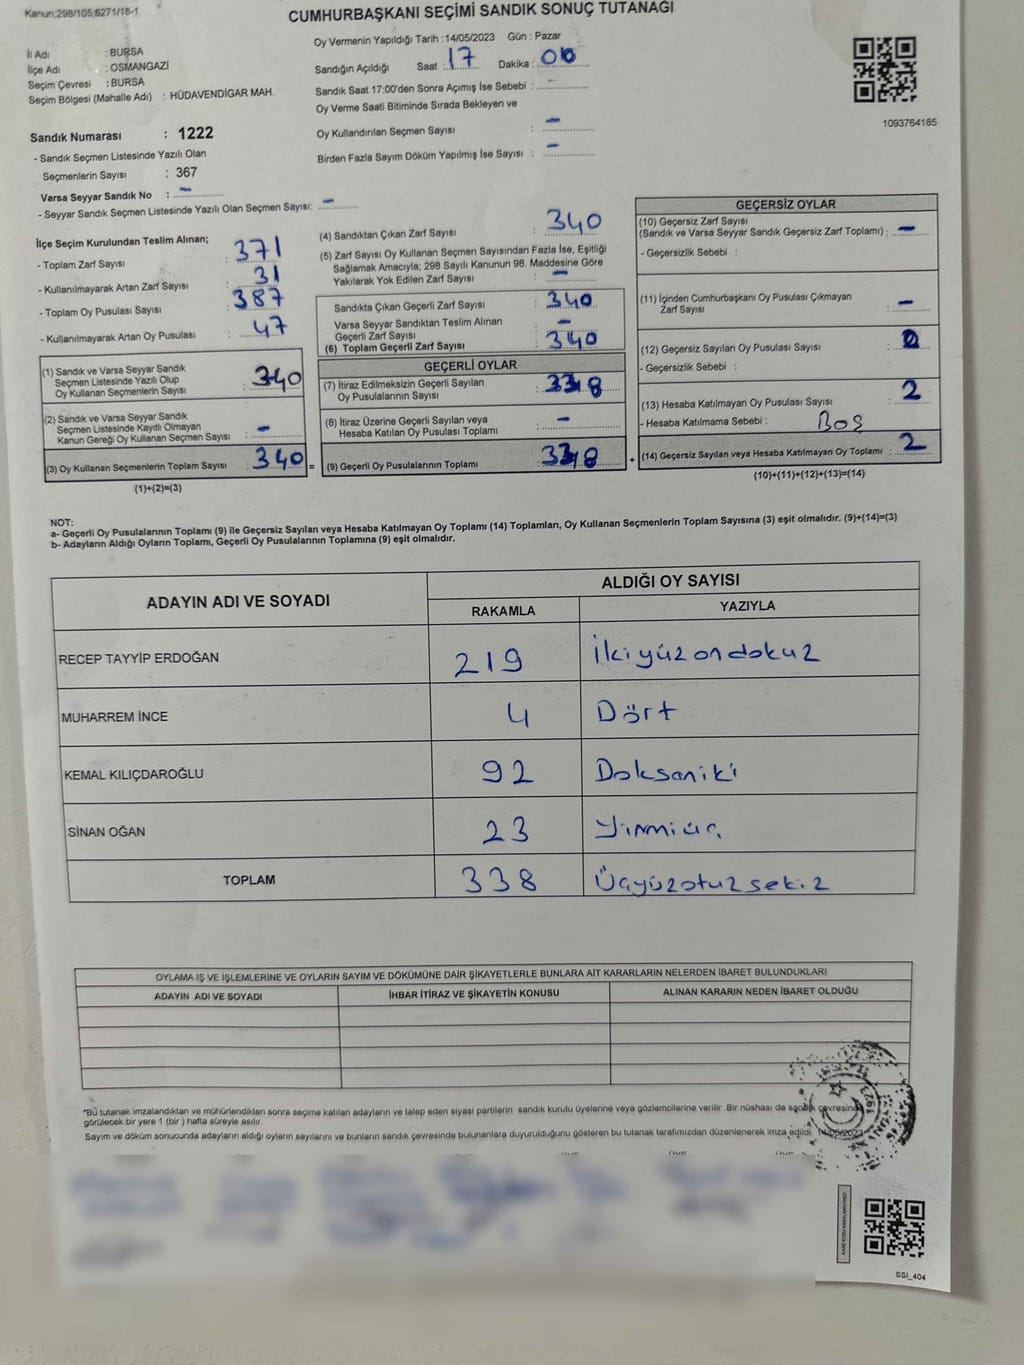 Kanun:298/105;6271/18-1
CUMHURBAŞKANI SEÇİMİ SANDIK SONUÇ TUTANAĞI
İl Adı : BURSA
İlçe Adı : OSMANGAZİ
Seçim Çevresi : BURSA
Seçim Bölgesi (Mahalle Adı) : HÜDAVENDİGAR MAH.
Sandık Numarası : 1222
- Sandık Seçmen Listesinde Yazılı Olan
Seçmenlerin Sayısı : 367
Varsa Seyyar Sandık No : -
- Seyyar Sandık Seçmen Listesinde Yazılı Olan Seçmen Sayısı: -
Oy Vermenin Yapıldığı Tarih : 14/05/2023 Gün : Pazar
Sandığın Açıldığı Saat : 17 Dakika : 00
Sandık Saat 17:00'den Sonra Açımış İse Sebebi : -
Oy Verme Saati Bitiminde Sırada Bekleyen ve
Oy Kullandırılan Seçmen Sayısı : -
Birden Fazla Sayım Döküm Yapılmış İse Sayısı : -
1093764185
İlçe Seçim Kurulundan Teslim Alınan;
- Toplam Zarf Sayısı : 371
- Kullanılmayarak Artan Zarf Sayısı : 31
- Toplam Oy Pusulası Sayısı : 387
- Kullanılmayarak Artan Oy Pusulası : 47
(1) Sandık ve Varsa Seyyar Sandık
Seçmen Listesinde Yazılı Olup
Oy Kullanan Seçmenlerin Sayısı : 340
(2) Sandık ve Varsa Seyyar Sandık
Seçmen Listesinde Kayıtlı Olmayan
Kanun Gereği Oy Kullanan Seçmen Sayısı : -
(3) Oy Kullanan Seçmenlerin Toplam Sayısı : 340 =
(1)+(2)=(3)
(4) Sandıktan Çıkan Zarf Sayısı : 340
(5) Zarf Sayısı Oy Kullanan Seçmen Sayısından Fazla İse, Eşitliği
Sağlamak Amacıyla; 298 Sayılı Kanunun 98. Maddesine Göre
Yakılarak Yok Edilen Zarf Sayısı : -
Sandıkta Çıkan Geçerli Zarf Sayısı : 340
Varsa Seyyar Sandıktan Teslim Alınan
Geçerli Zarf Sayısı : -
(6) Toplam Geçerli Zarf Sayısı : 340
GEÇERLİ OYLAR
(7) İtiraz Edilmeksizin Geçerli Sayılan
Oy Pusulalarının Sayısı : 338
(8) İtiraz Üzerine Geçerli Sayılan veya
Hesaba Katılan Oy Pusulası Toplamı : -
(9) Geçerli Oy Pusulalarının Toplamı : 338 +
GEÇERSİZ OYLAR
(10) Geçersiz Zarf Sayısı
(Sandık ve Varsa Seyyar Sandık Geçersiz Zarf Toplamı) : -
- Geçersizlik Sebebi :
(11) İçinden Cumhurbaşkanı Oy Pusulası Çıkmayan
Zarf Sayısı : -
(12) Geçersiz Sayılan Oy Pusulası Sayısı :
- Geçersizlik Sebebi :
(13) Hesaba Katılmayan Oy Pusulası Sayısı : 2
- Hesaba Katılmama Sebebi : Boş
(14) Geçersiz Sayılan veya Hesaba Katılmayan Oy Toplamı : 2
(10)+(11)+(12)+(13)=(14)
NOT:
a- Geçerli Oy Pusulalarının Toplamı (9) ile Geçersiz Sayılan veya Hesaba Katılmayan Oy Toplamı (14) Toplamları, Oy Kullanan Seçmenlerin Toplam Sayısına (3) eşit olmalıdır. (9)+(14)=(3)
b- Adayların Aldığı Oyların Toplamı, Geçerli Oy Pusulalarının Toplamına (9) eşit olmalıdır.
ADAYIN ADI VE SOYADI
ALDIĞI OY SAYISI
RAKAMLA YAZIYLA
RECEP TAYYİP ERDOĞAN 219 İkiyüzondokuz
MUHARREM İNCE 4 Dört
KEMAL KILIÇDAROĞLU 92 Doksaniki
SİNAN OĞAN 23 Yirmiüç
TOPLAM 338 Üçyüzotuzsekiz
OYLAMA İŞ VE İŞLEMLERİNE VE OYLARIN SAYIM VE DÖKÜMÜNE DAİR ŞİKAYETLERLE BUNLARA AİT KARARLARIN NELERDEN İBARET BULUNDUKLARI
ADAYIN ADI VE SOYADI İHBAR İTİRAZ VE ŞİKAYETİN KONUSU ALINAN KARARIN NEDEN İBARET OLDUĞU
*Bu tutanak imzalandıktan ve mühürlendikten sonra seçime katılan adayların ve talep eden siyasi partilerin sandık kurulu üyelerine veya gözlemcilerine verilir. Bir nüshası da sandık çevresinde
görülecek bir yere 1 (bir) hafta süreyle asılır.
Sayım ve döküm sonucunda adayların aldığı oyların sayılarını ve bunların sandık çevresinde bulunanlara duyurulduğunu gösteren bu tutanak tarafımızdan düzenlenerek imza edildi. 14/05/2023
SSI_404